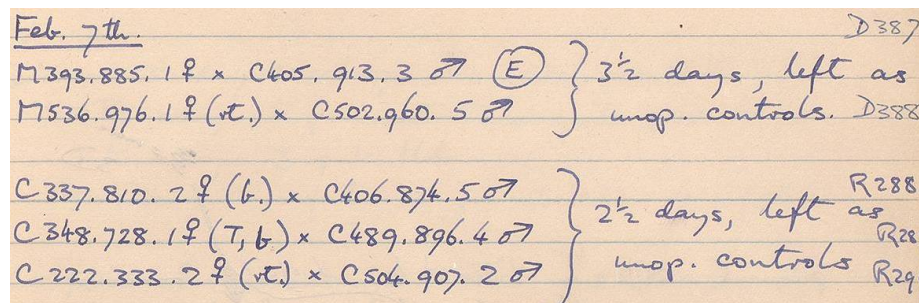 Feb. 7th. D387
M393.885.1♀ x C405.913.3 ♂ (E) } 3½ days, left as
M536.976.1♀ (vt.) x C502.960.5 ♂ } unop. controls. D388
C337.810.2♀ (b.) x C406.874.5 ♂ } R288
C348.728.1♀ (T, b) x C489.896.4 ♂ } 2½ days, left as R28
C222.333.2♀ (vt.) x C504.907.2 ♂ } unop. controls R29